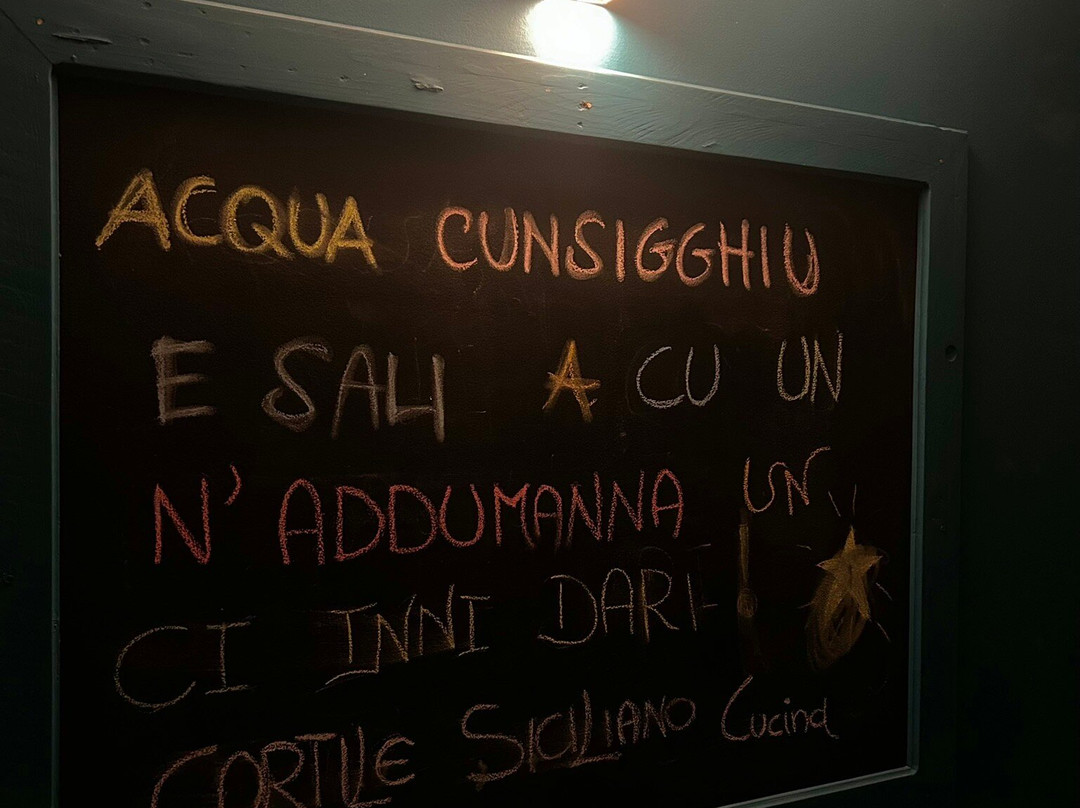 ACQUA CUNSIGGHIU
E SALI A CU UN
N' ADDUMANNA UN
CI INNI DARI
CORTILE SICILIANO Cucina